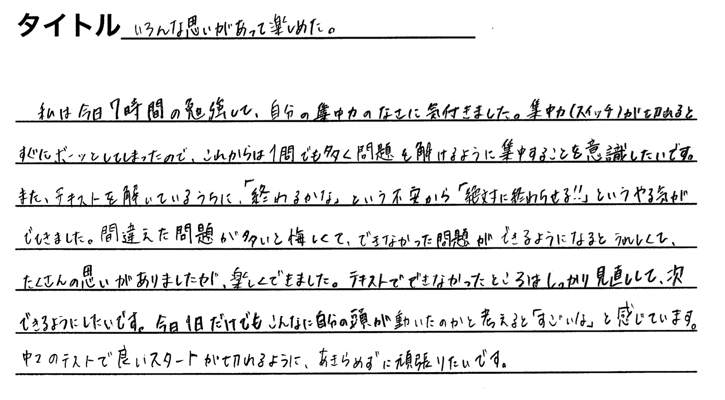 タイトル いろんな思いがあって楽しめた。
私は今日7時間の勉強して、自分の集中力のなさに気付きました。集中力(スイッチ)が切れると
すぐにボーッとしてしまったので、これからは1問でも多く問題を解けるように集中することを意識したいです。
また、テキストを解いているうちに、「終わるかな」という不安から「絶対に終わらせる!!」というやる気が
でてきました。間違えた問題が多いと悔しくて、できなかった問題ができるようになるとうれしくて、
たくさんの思いがありましたが、楽しくできました。テキストでできなかったところはしっかり見直しして、次
できるようにしたいです。今日1日だけでもこんなに自分の頭が動いたのかと考えると「すごいな」と感じています。
中2のテストで良いスタートが切れるように、あきらめずに頑張りたいです。